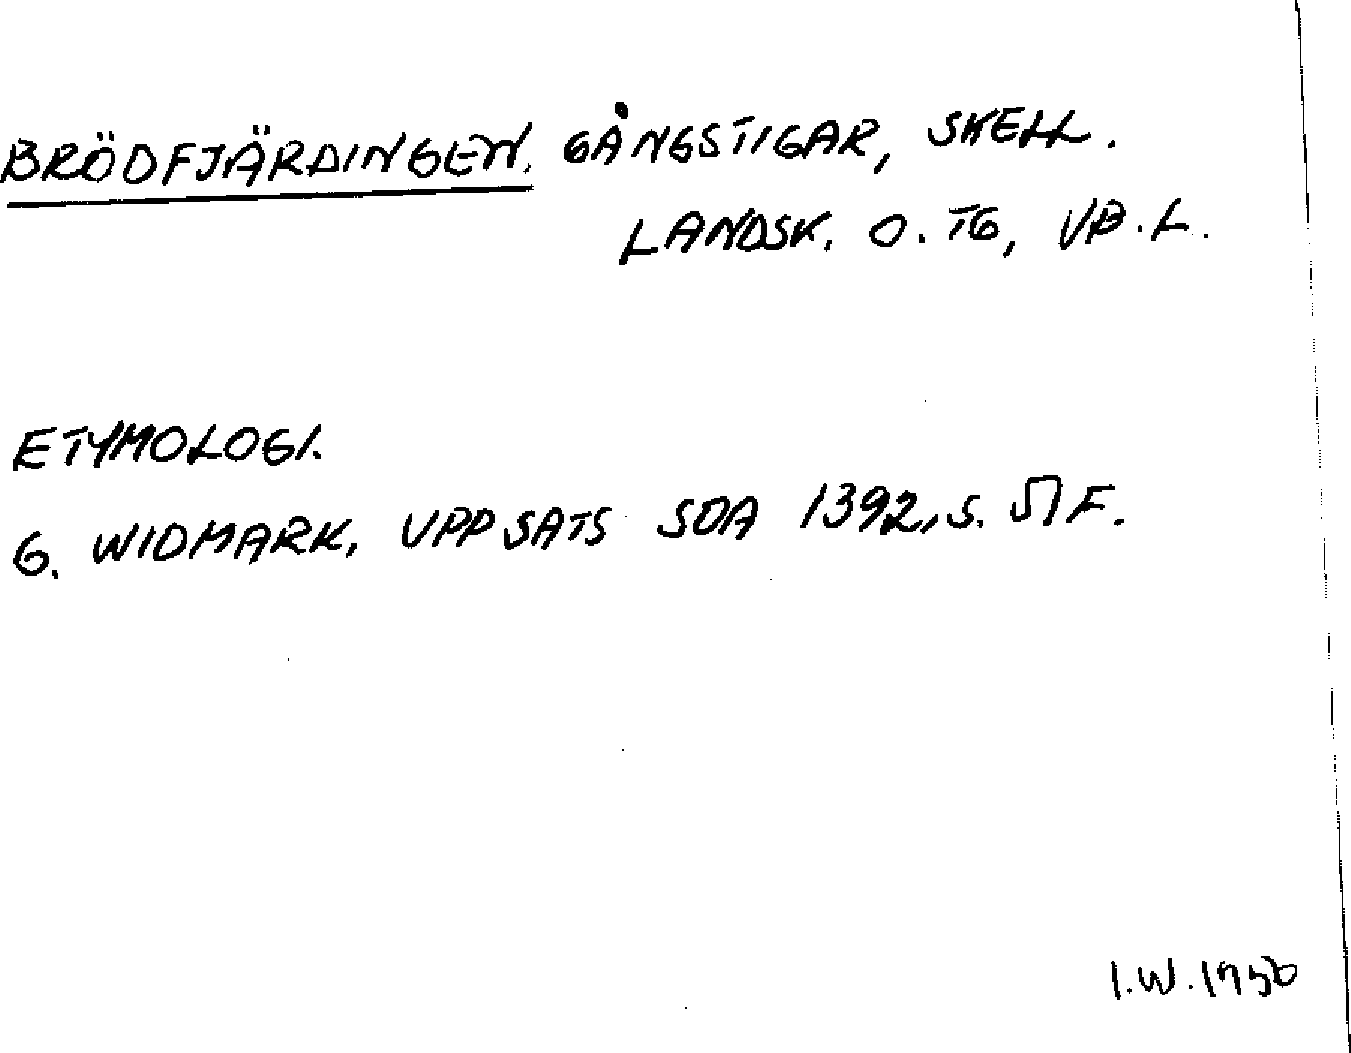 BRÖDFJÄRDINGEN. GÅNGSTIGAR, SKELL.
LANDSK. O. TG, VB.L.
ETYMOLOGI.
G. WIDMARK, UPPSATS SOA 1392, S. 51 F.
I.W. 1956